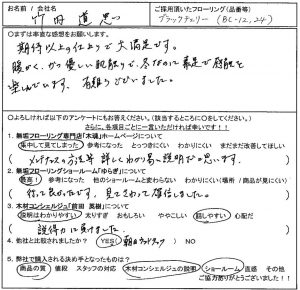 お名前 / 会社名
竹田 道思
ご採用頂いたフローリング(品番等)
ブラックチェリー (BC-12,24)
○まずは率直な感想をお願いします。
期待以上の仕上りで大満足です。
暖かく、かつ優しい肌触りで、冬なのに素足で感触を
楽しんでいます。有難うございました。
○よろしければ以下のアンケートにもお答えください。(該当するところに○をしてください。)
さらに、各項目ごとに一言いただければ幸いです!!
1. 無垢フローリング専門店「木魂」ホームページについて
( 集中して見てしまった 参考になった とっつきにくい わかりにくい まだまだ改善してほしい )
メンテナンスの方法等 詳しくわかり易い説明だと思います。
2. 無垢フローリングショールーム「ゆらぎ」について
( 最高! 参考になった 他のショールームと変わらない わかりにくい(場所 / 商品が見にくい) )
行って良かったです。見てさわって確信しました。
3. 木材コンシェルジュ「前田 英樹」について
( 説明はわかりやすい 太りすぎ おもしろい ややこしい 話しやすい 心配だ )
説得力に負けました。
4. 他社と比較されましたか? ( YES( 朝日ウッドテック ) NO )
5. 弊社で購入される決め手となったものは?
( 商品の質 価格 スタッフの対応 木材コンシェルジュの説明 ショールーム 直感 その他 )
ご協力ありがとうございました!!